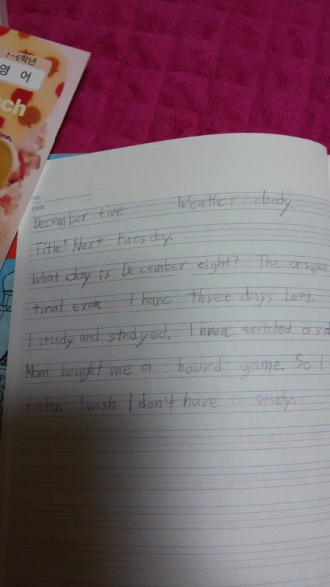 1-6학년
영 어
ch
December five Weather: cloudy
Title: Next tuesday.
What day is December eight? The answer
final exam I have three days left.
I study and studyed. I even watched a vid
Mom bought me a board game. So I
faster. I wish I don't have to study.